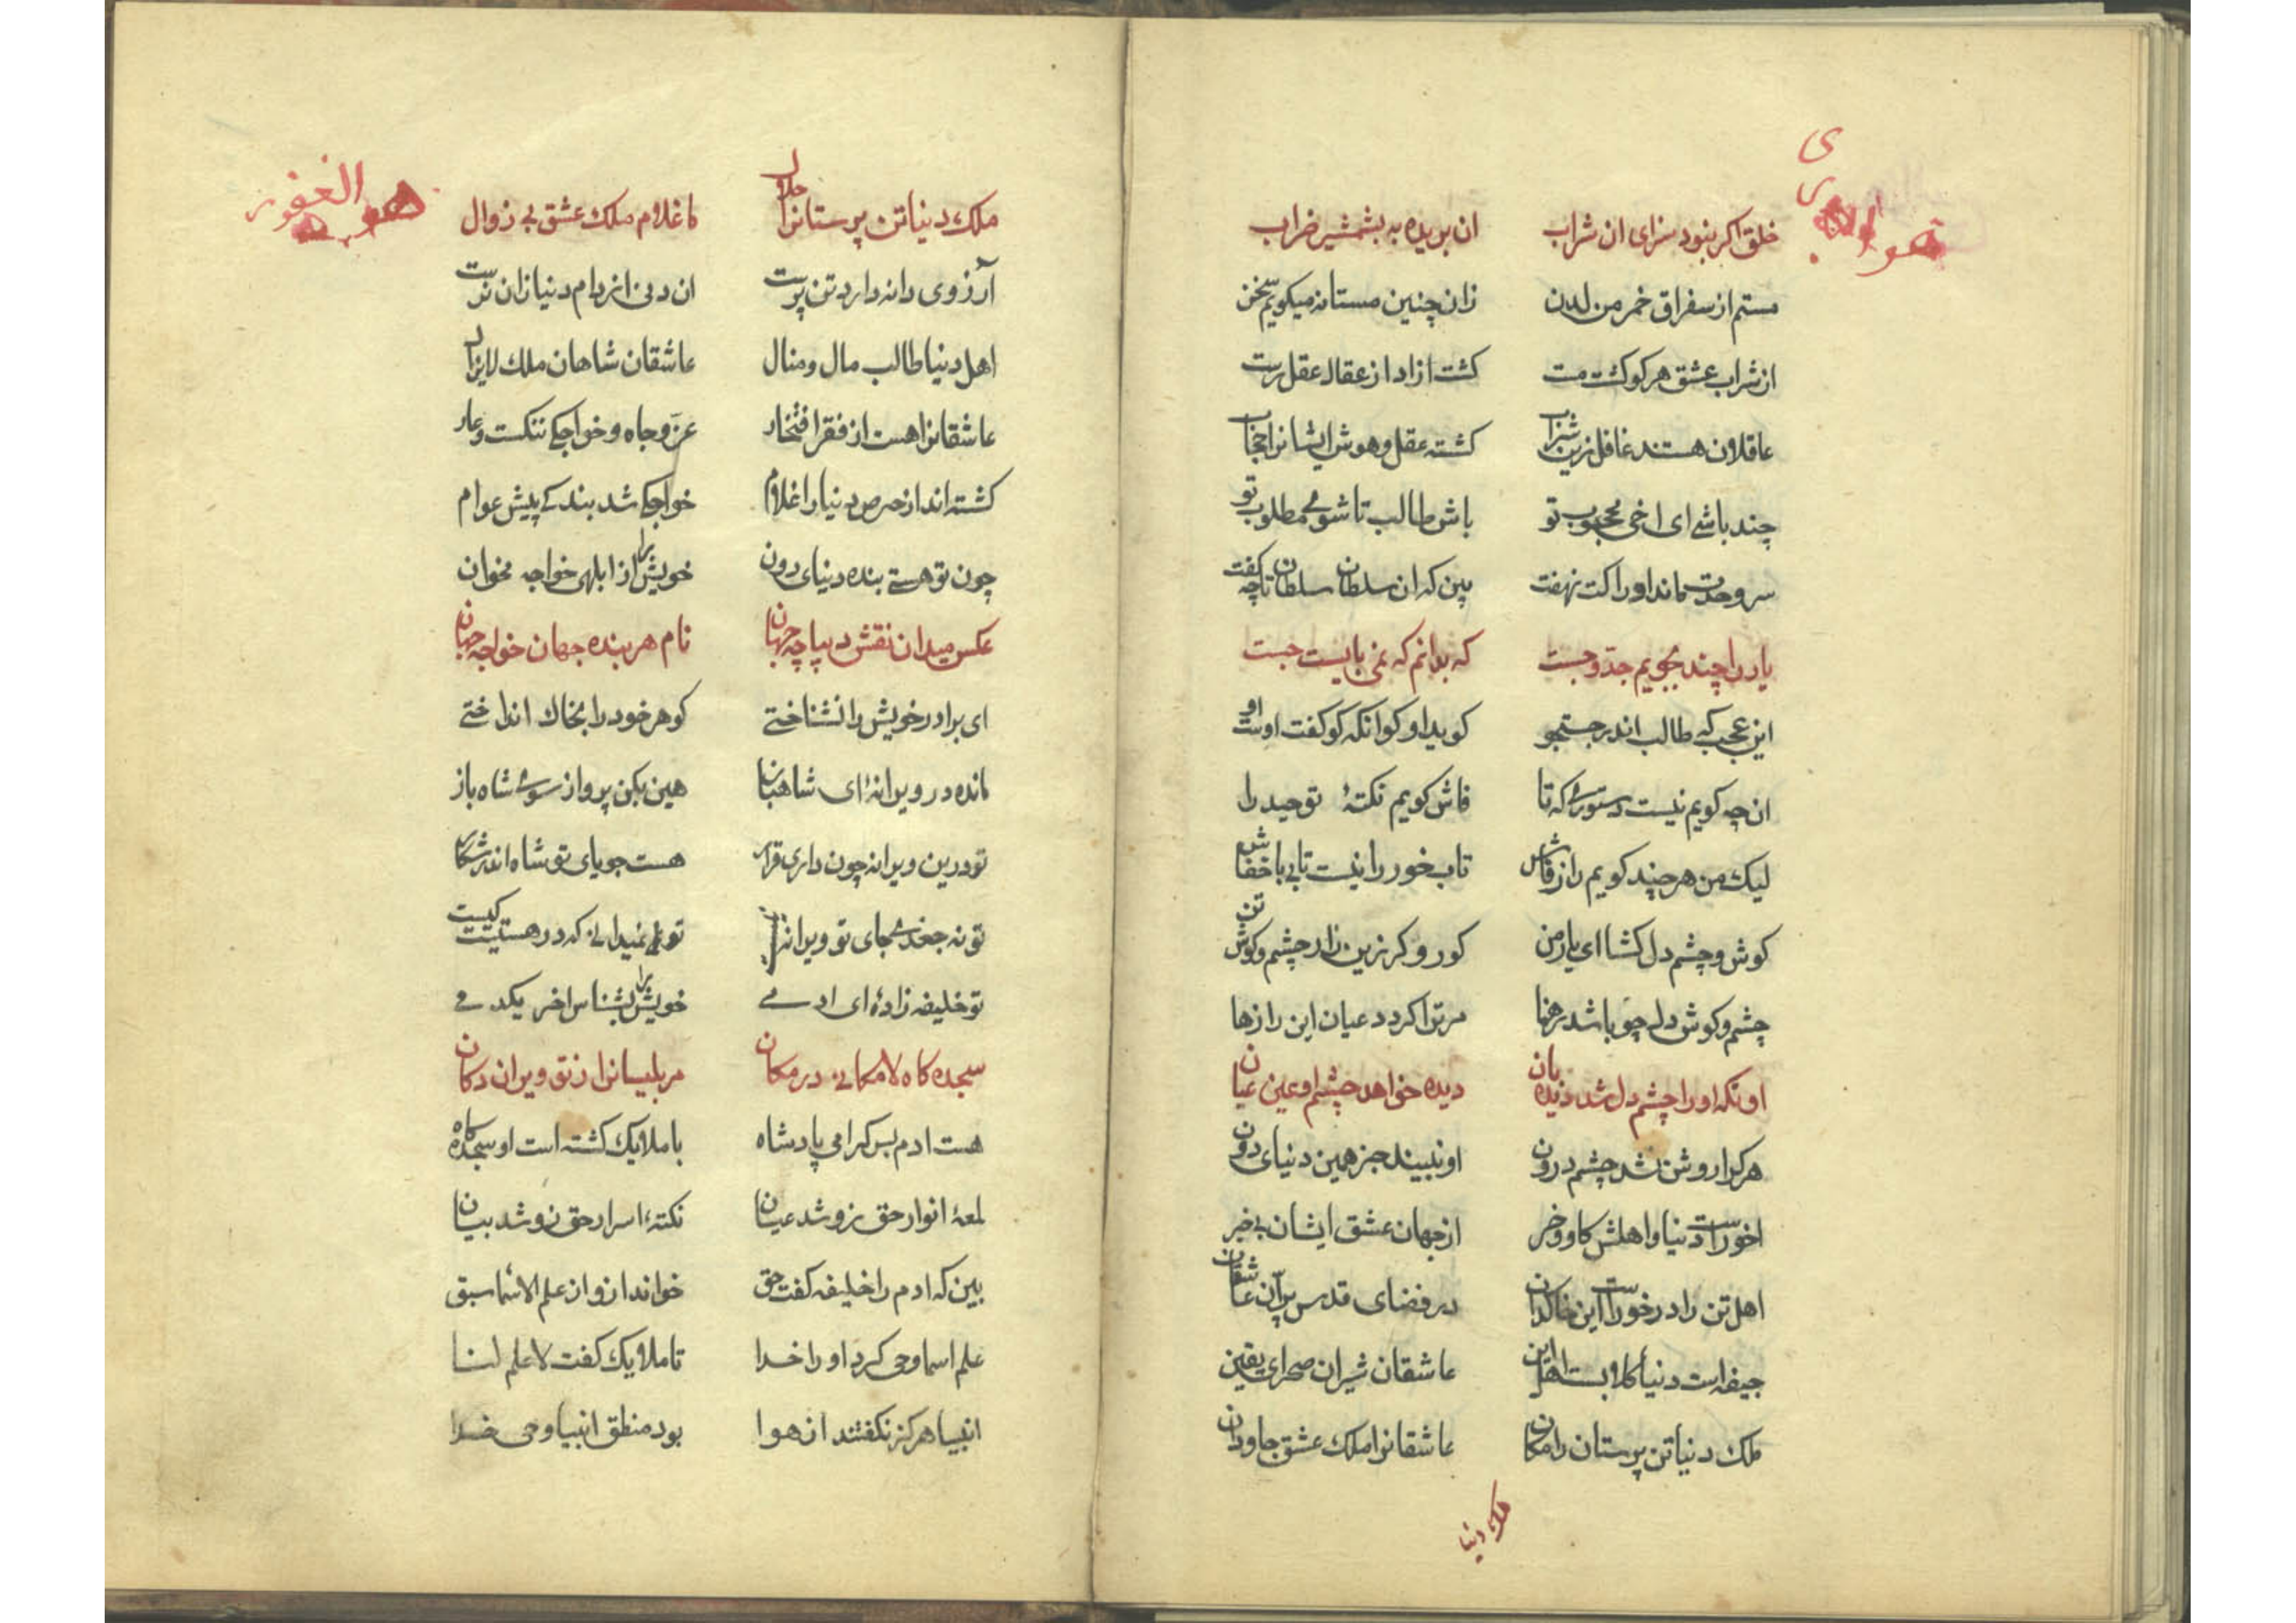 خلق اکر بنود سزای ان شراب ان بریده به بشمشیر ضراب
مستم از سغراق خمر من لدن زان چنین مستانه میکویم سخن
از شراب عشق هر کو کشت مست کشت ازاد از عقال عقل رست
عاقلان هستند غافل زین شراب کشته عقل و هوش ایشانرا حجاب
چند باشے ای اخی محجوب تو باش طالب تا شوے مطلوب تو
سر وحدت ماند او را کت نهفت بین که ان سلطان سلطان تا چه کفت
یار را چند بجویم جد و جست که بدانم که نمی بایست جست
این عجب کے طالب اندر جستجو کوید او کو انکه کو کفت اوست او
ان چه کویم نیست دستورے که تا فاش کویم نکتۀ توحید را
لیک من هر چند کویم راز فاش تاب خور را نیست تابے با خفاش
کوش و چشم دل کشا ای یار من کور و کر زین راز چشم و کوش تن
چشم و کوش دل چو باشد مر ترا کردد عیان این رازها
اونکه او را چشم دل شد دیده بان دیده خواهد چشم او عین عیان
هر کرا روشن نشد چشم درون او نبیند جز همین دنیای دون
اخور است دنیا و اهلش کاو و خر از جهان عشق ایشان بے خبر
اهل تن را در خور است این خاکدان در فضای قدس پرّان عاشقان
جیفه است دنیا کلابست اهل این عاشقان شیران صحرای یقین
ملک دنیا تن پرستان را مکان عاشقانرا ملک عشق جاودان
ملک دنیا
هو الغفور
ملک دنیا تن پرستانرا حلال ما غلام ملک عشق بے زوال
آرزوی دانه دارد تن پرست ان دنی از دام دنیا زان نرست
اهل دنیا طالب مال و منال عاشقان شاهان ملک لایزال
عاشقانرا هست از فقر افتخار عزّ و جاه و خواجکے ننکست و عار
کشته اند از حرص دنیا را غلام خواجکے شد بندکے پیش عوام
چون تو هستے بنده دنیای دون خویش را از ابلهی خواجه مخوان
عکس میدان نقش دیباچه جهان نام هر بنده جهان خواجه جهان
ای برادر خویش را نشناختے کوهر خود را بخاک انداختے
مانده در ویرانۀ ای شاهباز هین بکن پرواز سوے شاه باز
تو درین ویرانه چون داری قرار هست جویای تو شاه اندر شکار
تو نه جغدے جای تو ویرانه نیست تو نمیدانے که در هستیت کیست
تو خلیفه زادۀ ای ادمے خویش را بشناس اخر یکدمے
سجده کاه لامکانے در مکان مر بلیسانرا ز تو ویران دکان
هست ادم بس کرامی پادشاه با ملایک کشته است او سجده کاه
لمعۀ انوار حق زو شد عیان نکتۀ اسرار حق زو شد بیان
بین که ادم را خلیفه کفت حق خواند از و از علم الاسما سبق
علم اسما وحی کرد او را خدا تا ملایک کفت لا علم لنا
انبیا هرکز نکفتند از هوا بود منطق انبیا وحی خدا